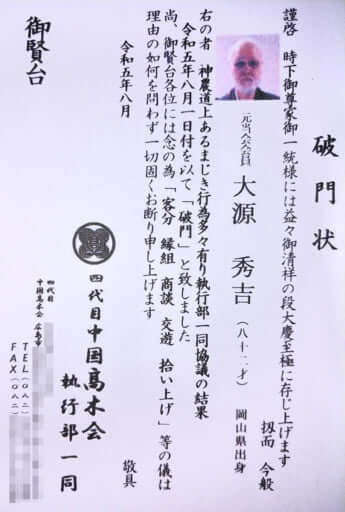 破門状
謹啓 時下御尊家御一統様には益々御清祥の段大慶至極に存じ上げます
扨而 今般
元当会会員 大源 秀吉 (八十二才) 岡山県出身
右の者 神農道上あるまじき行為多々有り執行部一同協議の結果
令和五年八月一日付を以て「破門」と致しました
尚、御賢台各位には念の為「客分 縁組 商談 交遊 拾い上げ」等の儀は
理由の如何を問わず一切固くお断り申し上げます
敬具
令和五年八月
四代目中国高木会
執行部一同
四代目
中国高木会 広島市
TEL(〇八二)
FAX(〇八二)
御賢台